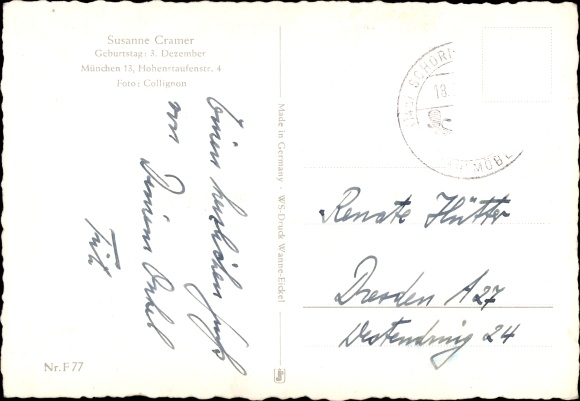 Susanne Cramer
Geburtstag: 3. Dezember
München 13, Hohenstaufenstr. 4
Foto: Collignon
Einen herzlichen Gruß
von Deinem Onkel
Fritz
Made in Germany - WS-Druck Wanne-Eickel
Nr. F 77
SCHORF
13.
MÖBE
Renate Hütter
Dresden A 27
Westendring 24